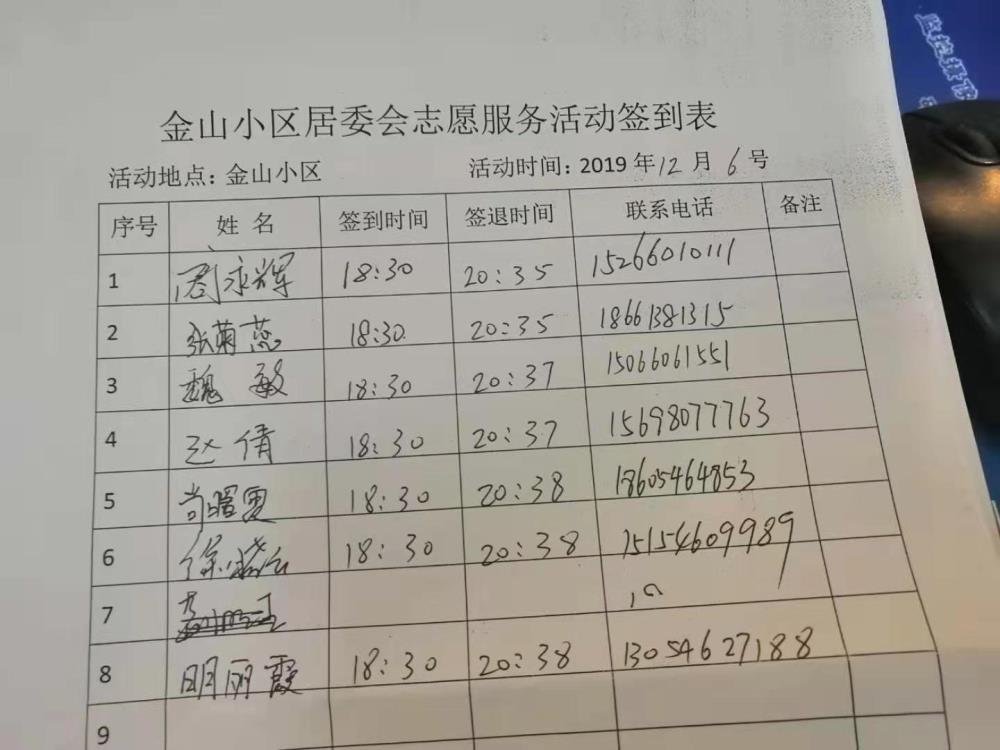 监控操作
金山小区居委会志愿服务活动签到表
活动地点：金山小区 活动时间：2019 年 12 月 6 号
序号 姓 名 签到时间 签退时间 联系电话 备注
1 周永辉 18:30 20:35 15266010111
2 张菊蕊 18:30 20:35 18661381315
3 魏敏 18:30 20:37 15066061551
4 赵倩 18:30 20:37 15698077763
5 尚曙霞 18:30 20:38 18605464853
6 徐 18:30 20:38 15154609989
7
8 明丽霞 18:30 20:38 13054627188
9